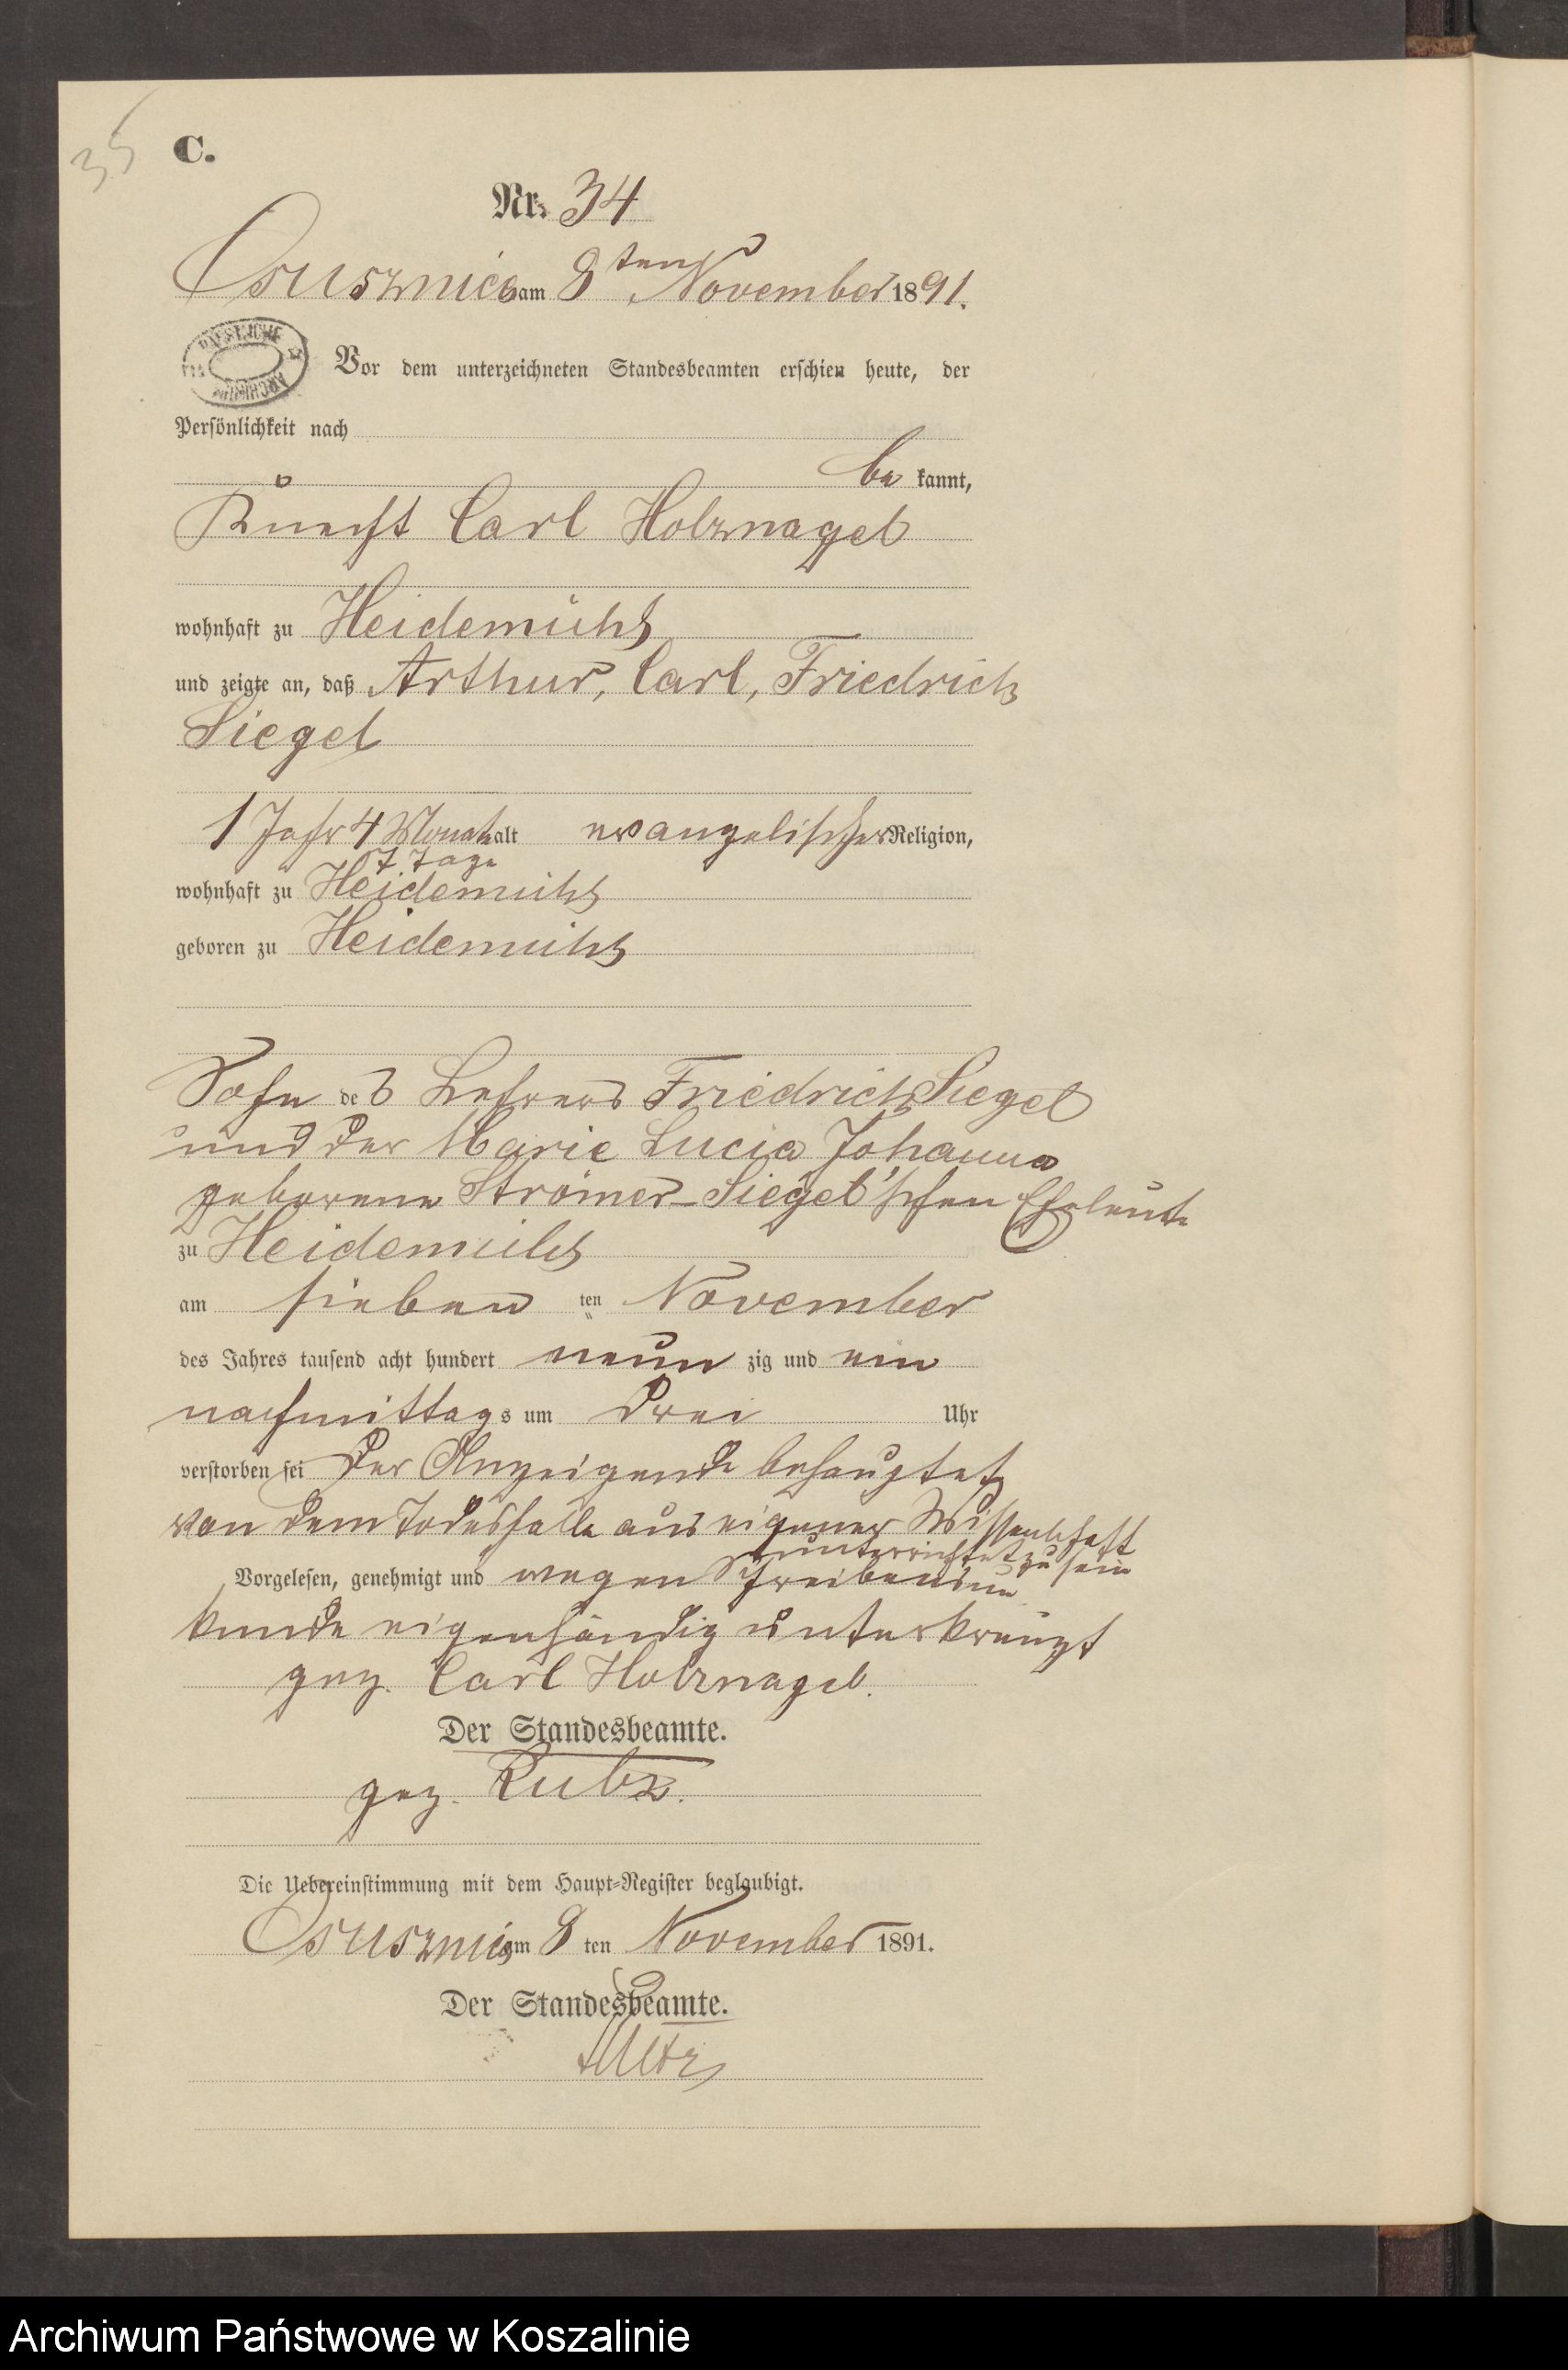 35
C.
Nr. 34
Osusznica am 8ten November 1891.
Vor dem unterzeichneten Standesbeamten erschien heute, der
Persönlichkeit nach
be kannt,
Knecht Carl Holznagel
wohnhaft zu Heidemühl
und zeigte an, daß Arthur, Carl, Friedrich
Siegel
1 Jahr 4 Monate alt evangelischer Religion,
7 Tage
wohnhaft zu Heidemühl
geboren zu Heidemühl
Sohn des Lehrers Friedrich Siegel
und der Marie Lucia Johanna
geborene Strömer-Siegel'schen Eheleute
zu Heidemühl
am sieben ten November
des Jahres tausend acht hundert neun zig und ein
nachmittags um drei Uhr
verstorben sei Der Anzeigende behauptet
von dem Todesfalle aus eigener Wissenschaft
unterrichtet zu sein
Vorgelesen, genehmigt und wegen Schreibensun
kunde eigenhändig unterkreuzt
gez. Carl Holznagel.
Der Standesbeamte.
gez.
Die Uebereinstimmung mit dem Haupt-Register beglaubigt.
Osusznica am 8 ten November 1891.
Der Standesbeamte.
Archiwum Państwowe w Koszalinie